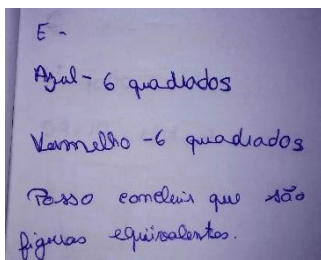 E -
Azul - 6 quadrados
Vermelho - 6 quadrados
Posso concluir que são
figuras equivalentes.